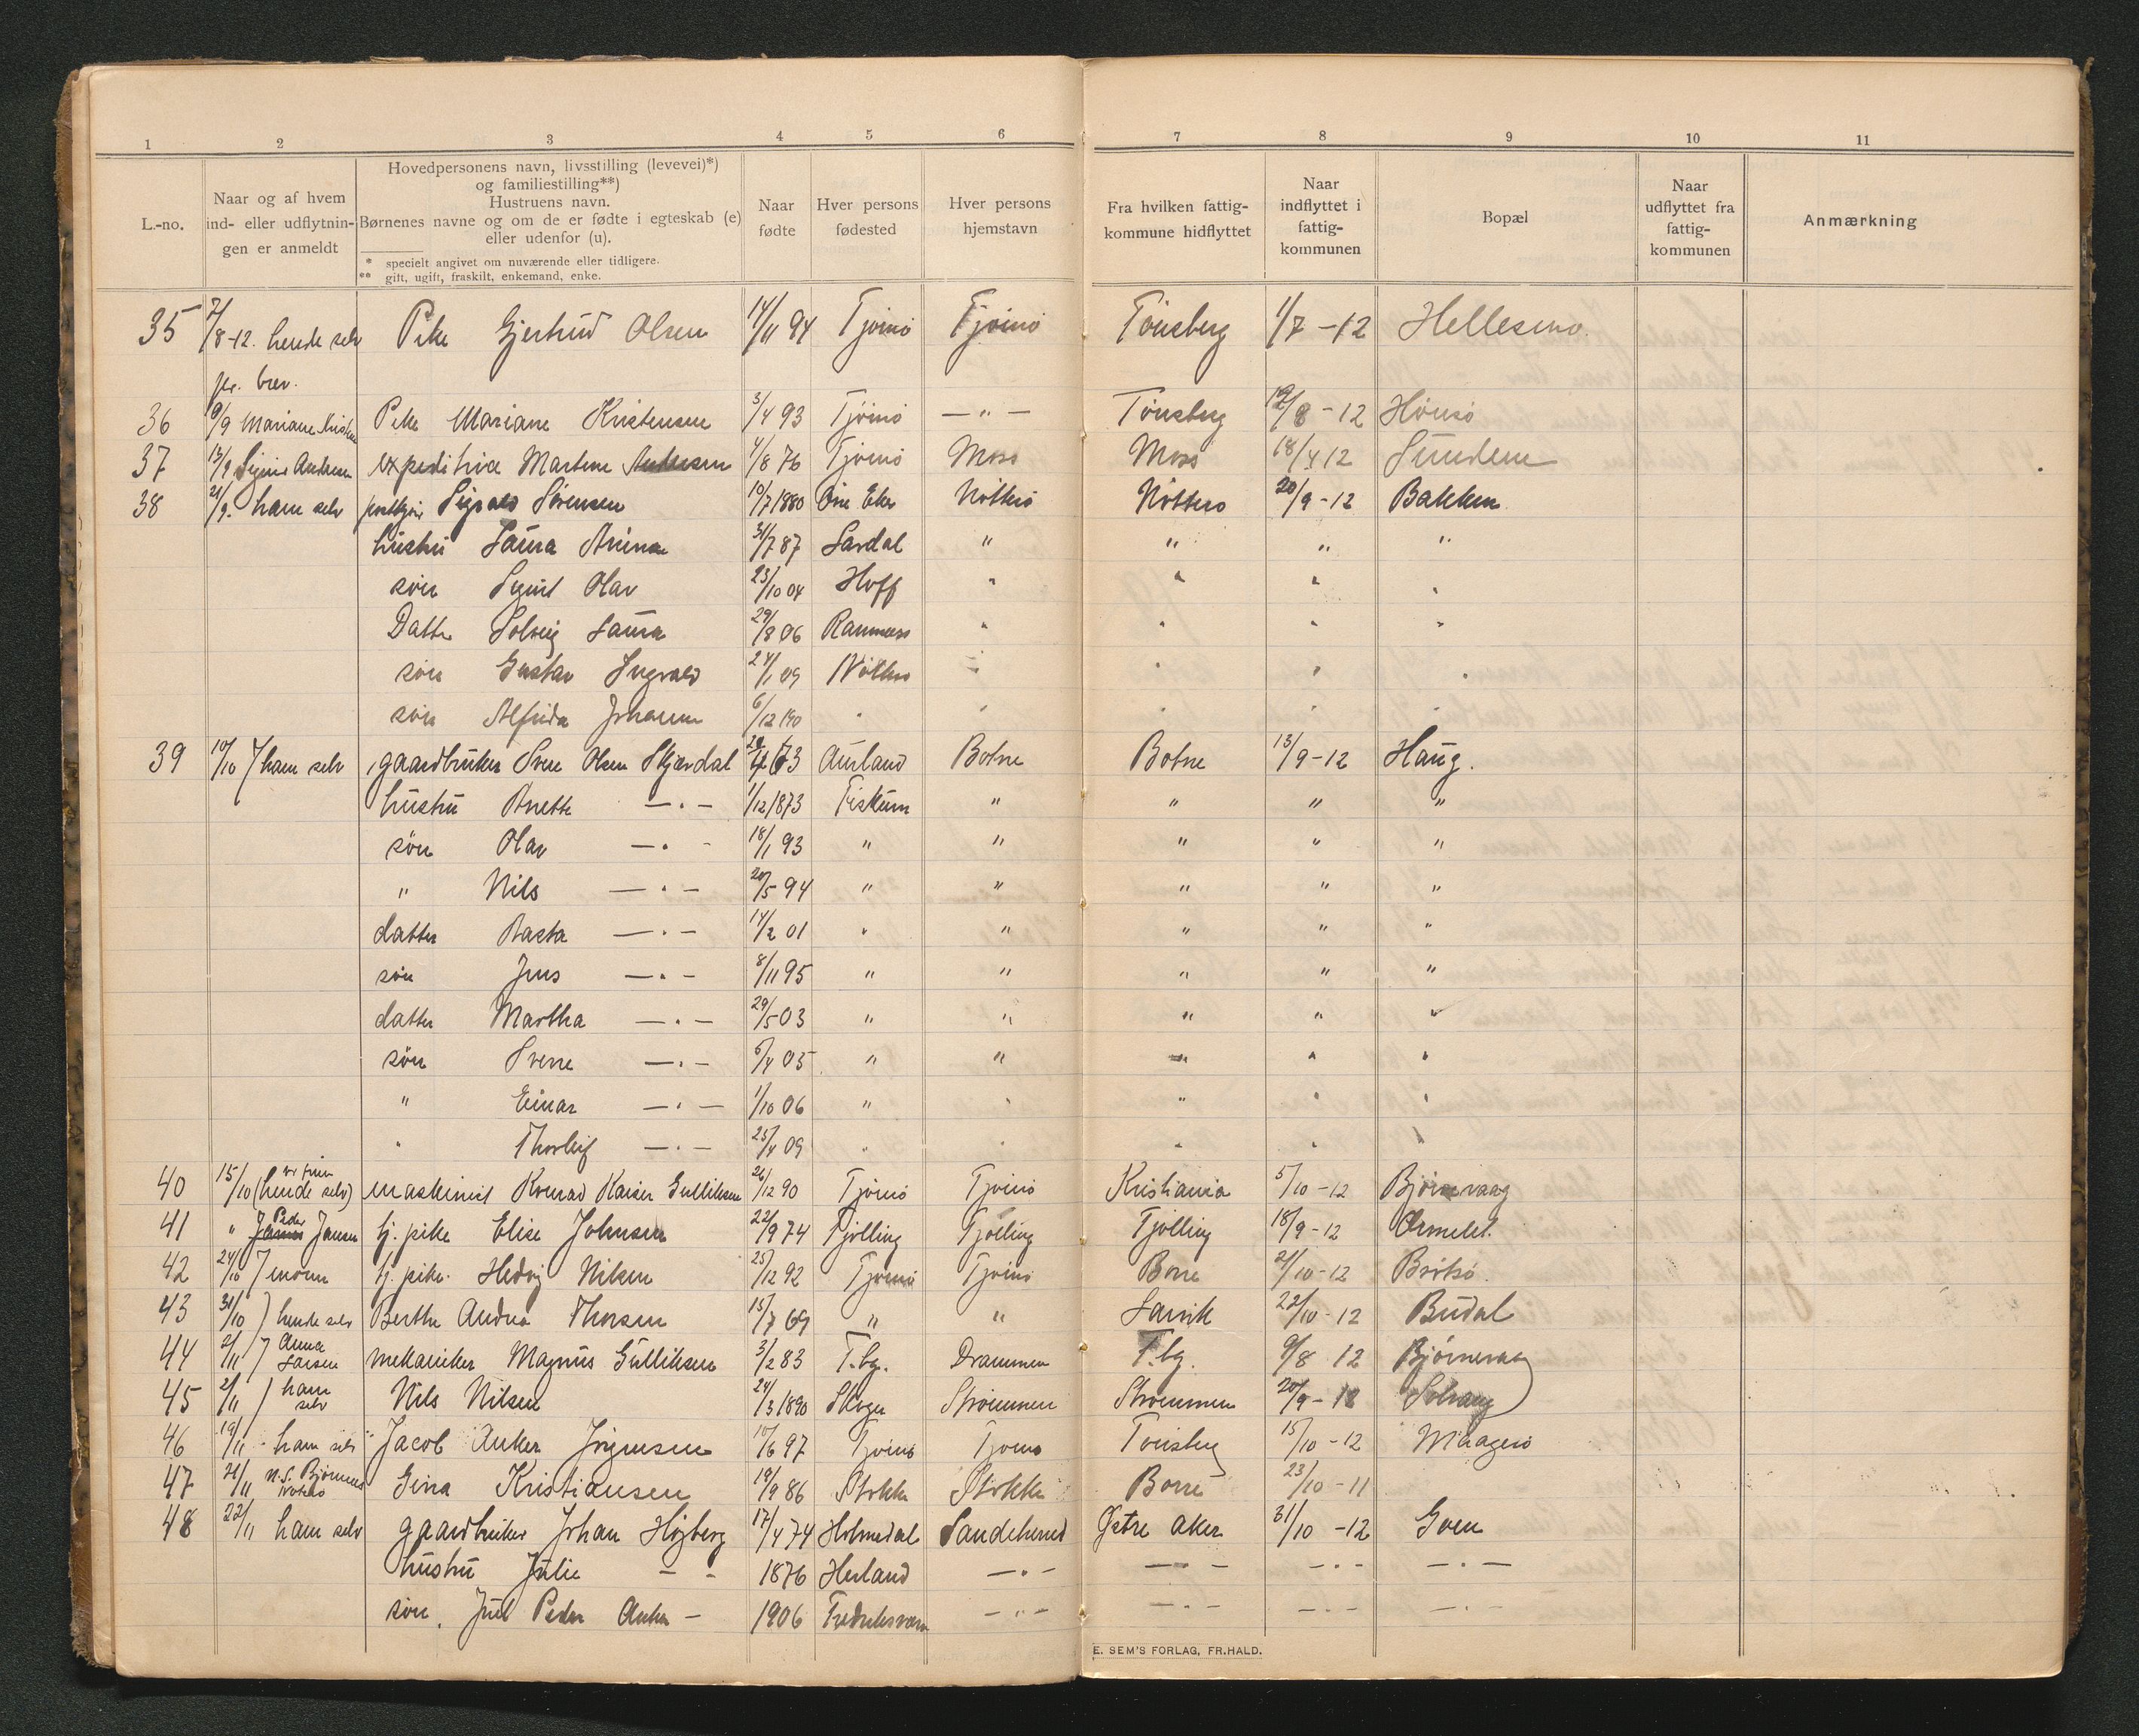 1 2 3 4 5 6 7 8 9 10 11
L.-no.
Naar og af hvem
ind- eller udflytnin-
gen er anmeldt
Hovedpersonens navn, livsstilling (levevei)*)
og familiestilling**)
Hustruens navn.
Børnenes navne og om de er fødte i egteskab (e)
eller udenfor (u).
* specielt angivet om nuværende eller tidligere.
** gift, ugift, fraskilt, enkemand, enke.
Naar
fødte
Hver persons
fødested
Hver persons
hjemstavn
Fra hvilken fattig-
kommune hidflyttet
Naar
indflyttet i
fattig-
kommunen
Bopæl
Naar
udflyttet fra
fattig-
kommunen
Anmærkning
35 7/8-12. hende selv Pike Gjertrud Olsen 14/11 94 Tjømø Tjømø Tønsberg 1/7 -12 Hellesmo.
pr. brev.
36 9/9 Mariane Pike Mariane Kristensen 3/4 93 Tjømø — " — Tønsberg /8 -12 Hønsø
37 13/9 Signe Andersen expeditrice Martine Andersen 4/8 76 Tjømø Moss Moss 18/4 12 Sundene
38 21/9. ham selv Sigvald Sørensen 10/7 1880 Øvre Eker Nøtterø Nøtterø 20/9 -12 Bakken
hustru Laura Anina 31/7 87 Lardal " " " "
søn Sigurd Olav 23/10 04 Hoff " " " "
Datter Solveig Laura 29/8 06 Ramnæs " " " "
søn Gustav Ingvald 24/1 09 Nøtterø " " " "
søn Alfrida Johanne 6/12 190 " " " " "
39 10/10 ham selv gaardbruker Svere Olsen Skjærdal 63 Aurland Botne Botne 13/9 -12 Haug.
hustru Anette — " — 1/12 1873 Fiskum " " " "
søn Olav — " - 18/1 93 " " " " "
" Nils — " — 20/5 94 " " " " "
datter Aasta — " — 14/2 01 " " " " "
søn Jens — " — 8/11 95 " " " " "
datter Martha — " — 29/5 03 " " " " "
søn Sverre — " — 5/4 05 " " " " "
" Einar — " — 1/10 06 " " " " "
" Thorleif — " — 25/4 09 " " " " "
40 15/10 (hende selv) maskinist Konrad Kaiser Gulliksen 26/12 90 Tjømø Tjømø Kristiania 5/10 -12 Bjørnevaag
41 " Peder Jansen tj. pike Elise Johnsen 22/9 74 Tjølling Tjølling Tjølling 18/9 -12 Ormelet.
42 24/10 moren tj. pike. Hedvig Nilsen 25/12 92 Tjømø Tjømø Borre 21/10 -12 Brøtsø.
43 31/10 hende selv Berthe Andrea Thorsen 15/7 69 " " Larvik 22/10 -12 Budal
44 2/11 Anna Larsen mekaniker Magnus Gulliksen 3/2 83 T.bg. Drammen T.bg. 9/8 12 Bjørnevaag
45 2/11 ham selv Nils Nilsen 24/3 1890 Skoger Strømmen Strømmen 20/9 - 12 Solvang
46 19/11 - ham selv Jacob Anker Jørgensen 10/6 97 Tjømø Tjømø Tønsberg 15/10 -12 Maagerø
47 21/11 N. S. Bjørnnes Nøtterø Gina Kristiansen 19/9 86 Stokke Stokke Borre 23/10 -11
48 22/11 ham selv gaardbruker Johan Højberg 17/4 74 Holmedal Sandeherred Østre Aker 31/10 -12 Goen
hustru Julie — - 1876 Herland — " — — " — — " — — " —
søn. Juul Peder Anker — 1906 Fredriksværn — " — — " — — " — — " —
E. SEM'S FORLAG, FR.HALD.